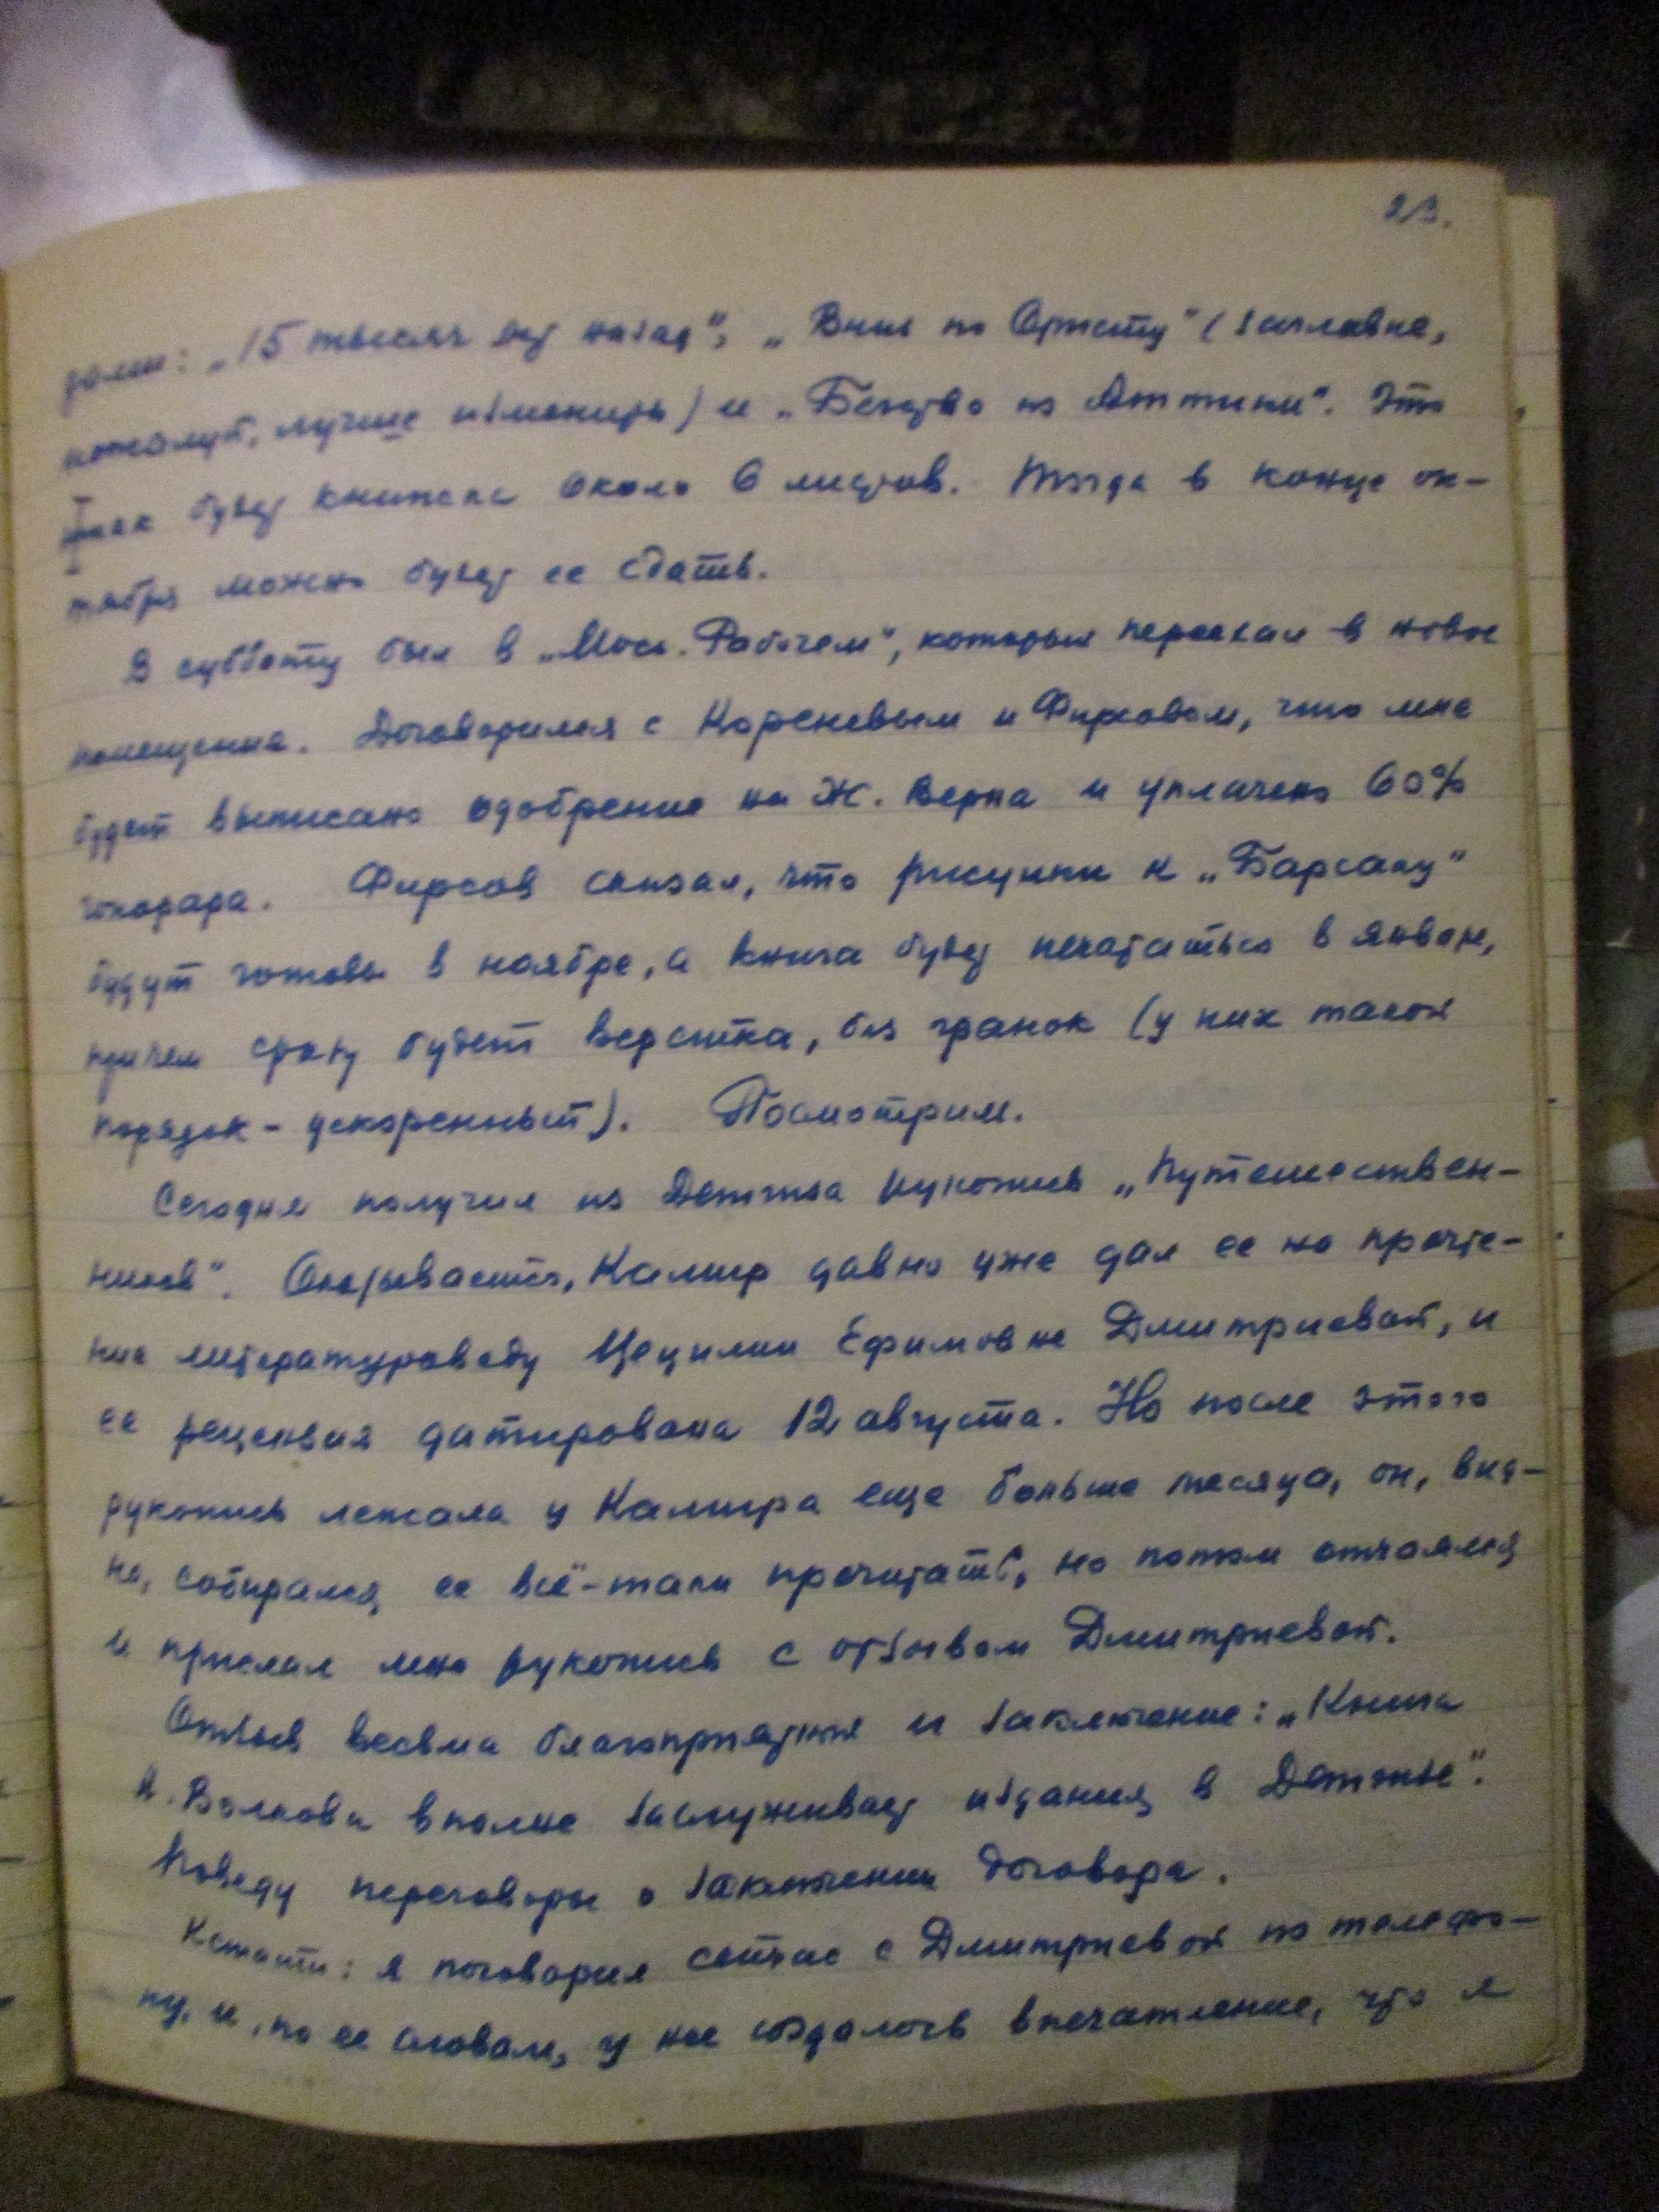 23.
дали: „15 тысяч лет назад", „Вниз по" (заглавие,
пожалуй, лучше изменить) и „Бегство из Аттики". Это
так будет книжка около 6 листов. Тогда в конце ок-
тября можно будет ее сдать.
В субботу был в „Моск. Рабочем", который переехал в новое
помещение. Договорился с Кореневым и Фирсовым, что мне
будет выписано одобрение на Ж. Верна и уплачено 60%
гонорара. Фирсов сказал, что рисунки к „Барсаку"
будут готовы в ноябре, а книга будет печататься в январе,
причем сразу будет верстка, без гранок (у них такой
порядок - ускоренный). Посмотрим.
Сегодня получил из Детгиза рукопись „Путешествен-
ников". Оказывается, Камир давно уже дал ее на прочте-
ние литературоведу Цецилии Ефимовне Дмитриевой, и
ее рецензия датирована 12 августа. Но после этого
рукопись лежала у Камира еще больше месяца, он, вид-
но, собирался ее всё-таки прочитать, но потом отчаялся
и прислал мне рукопись с отзывом Дмитриевой.
Отзыв весьма благоприятный и заключение: „Книга
А. Волкова вполне заслуживает издания в Детгизе".
Поведу переговоры о заключении договора.
Кстати: я поговорил сейчас с Дмитриевой по телефо-
ну, и, по ее словам, у нее создалось впечатление, что я